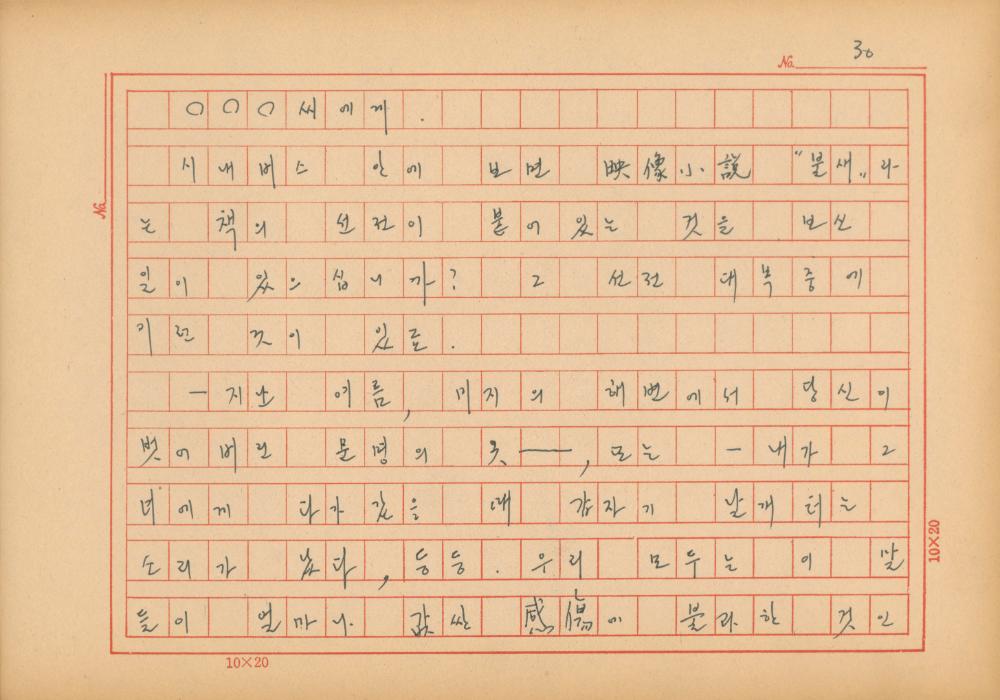 No. 30
○○○씨에게.
시내버스 안에 보면 映像小說 "불새"라
는 책의 선전이 붙어 있는 것을 보신
일이 있으십니까? 그 선전 대복중에
이런 것이 있료.
—지난 여름, 미지의 해변에서 당신이
벗어버린 문명의 옷——, 또는 —내가 그
녀에게 다가갔을 때 갑자기 날개 터는
소리가 났다, 등등. 우리 모두는 이 말
들이 얼마나 값싼 感傷에 불과한 것인
No.
10×20
10×20